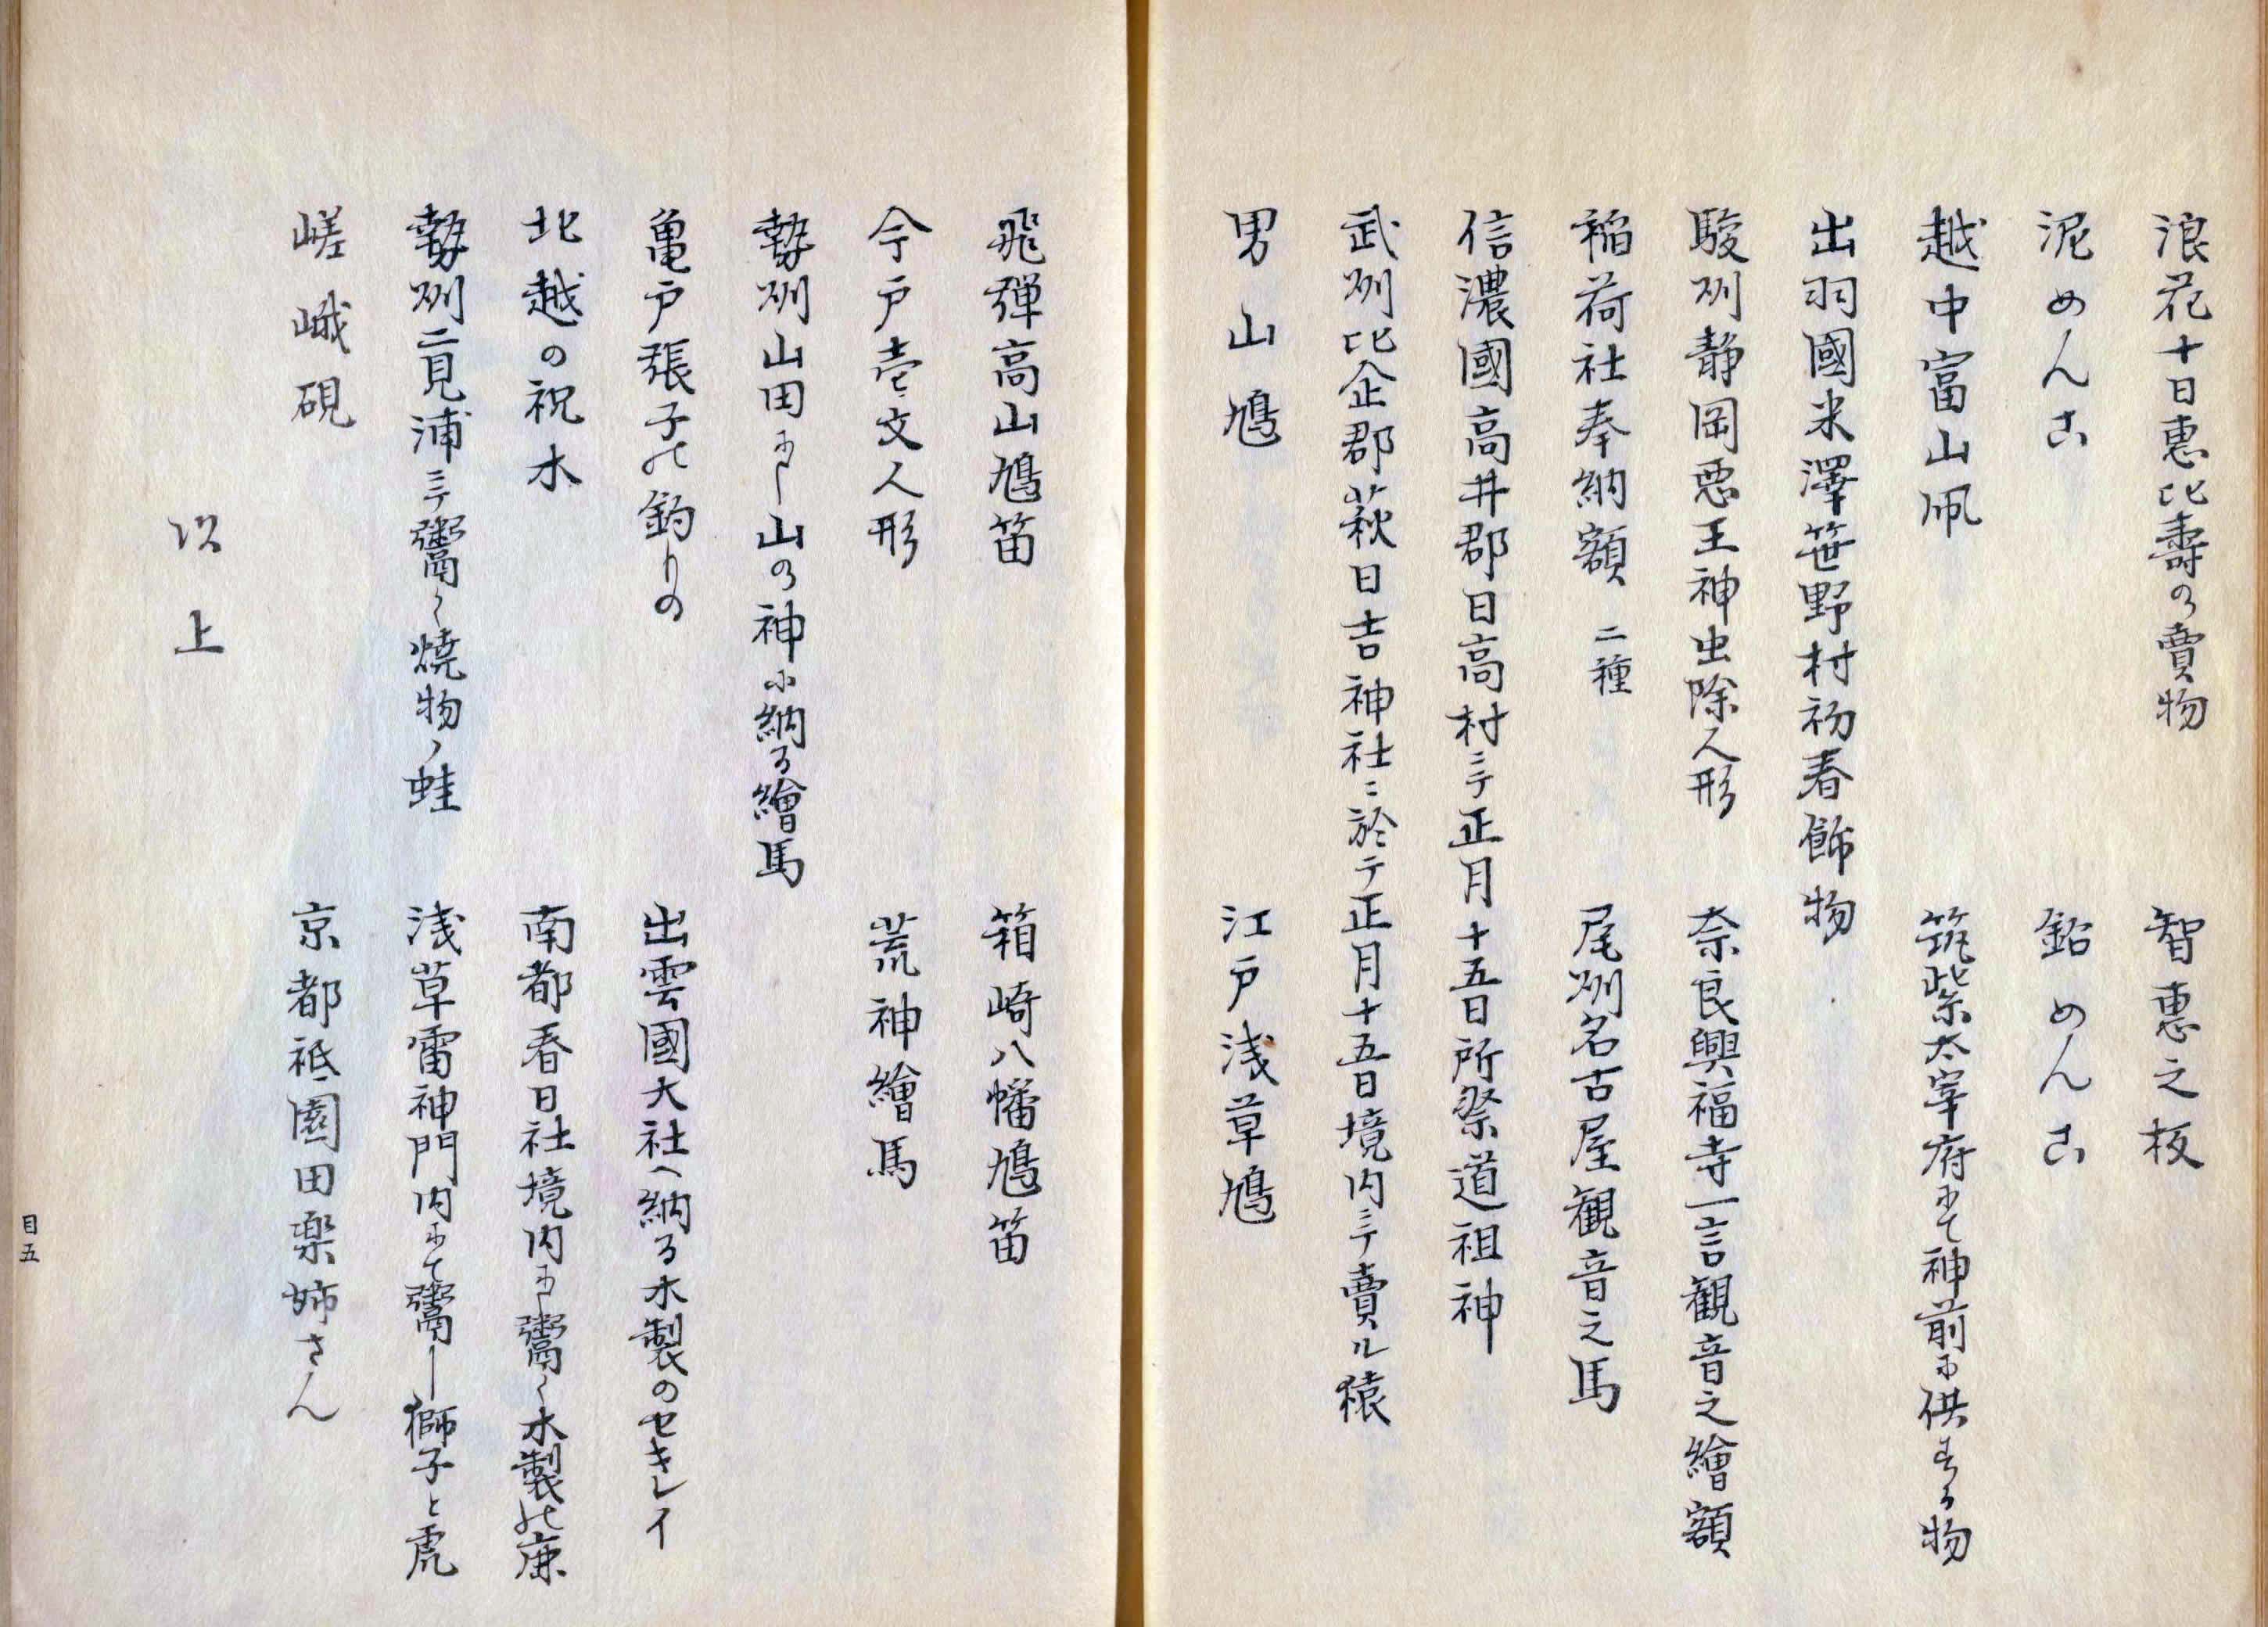 浪花十日惠比壽の賣物　智惠之板
泥めんこ　鉛めんこ
越中富山凧　筑紫太宰府にて神前に供する物
出羽國米澤笹野村初春飾物
駿州静岡悪王神虫除人形　奈良興福寺一言観音之繪額
稲荷社奉納額 二種　尾州名古屋観音之馬
信濃國高井郡日高村ニテ正月十五日所祭道祖神
武州比企郡萩日吉神社ニ於テ正月十五日境内ニテ賣ル猿
男山鳩　江戸浅草鳩
飛弾高山鳩笛　箱崎八幡鳩笛
今戸壱文人形　荒神繪馬
勢州山田にし山の神に納る繪馬
亀戸張子の釣りの　出雲國大社へ納る木製のセキレイ
北越の祝木　南都春日社境内に鬻く木製の鹿
勢州二見浦ニテ鬻く焼物ノ蛙　浅草雷神門内にて鬻し獅子と虎
嵯峨硯　京都祇園田楽姉さん
以上
目五